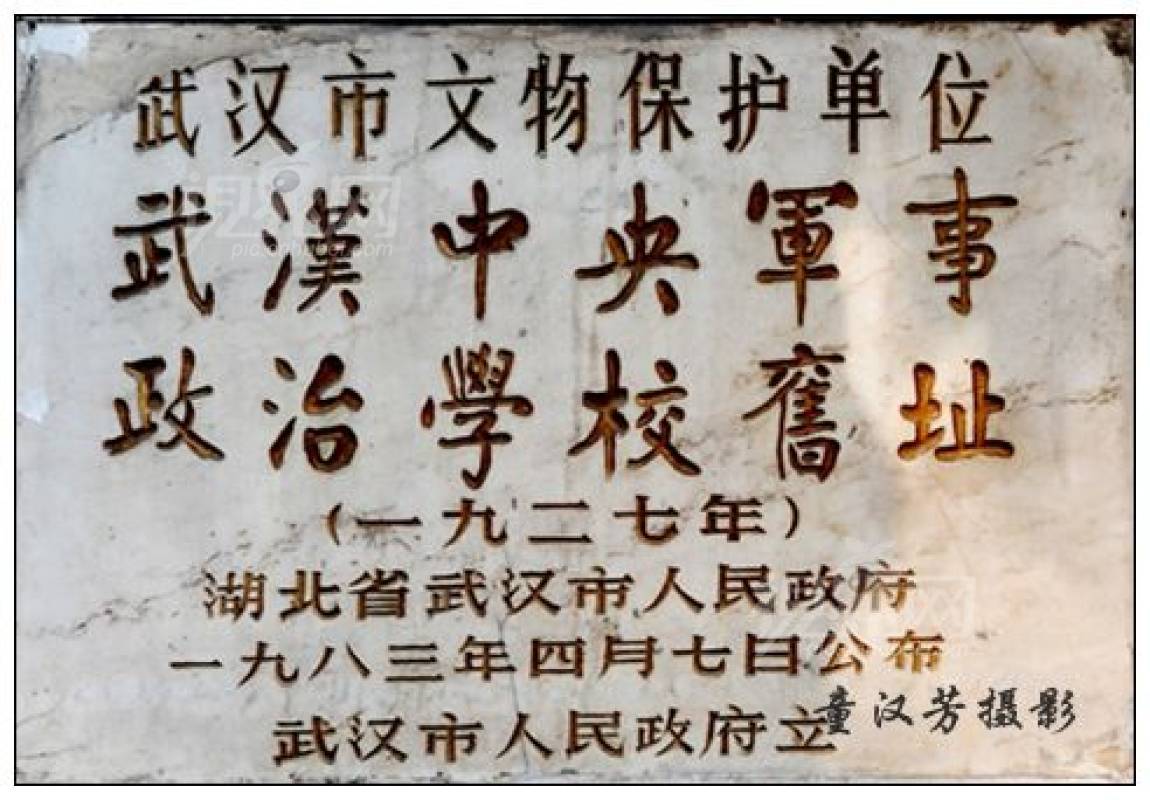 武汉市文物保护单位
武漢中央軍事
政治學校舊址
（一九二七年）
湖北省武汉市人民政府
一九八三年四月七日公布
武汉市人民政府立
童汉芳摄影